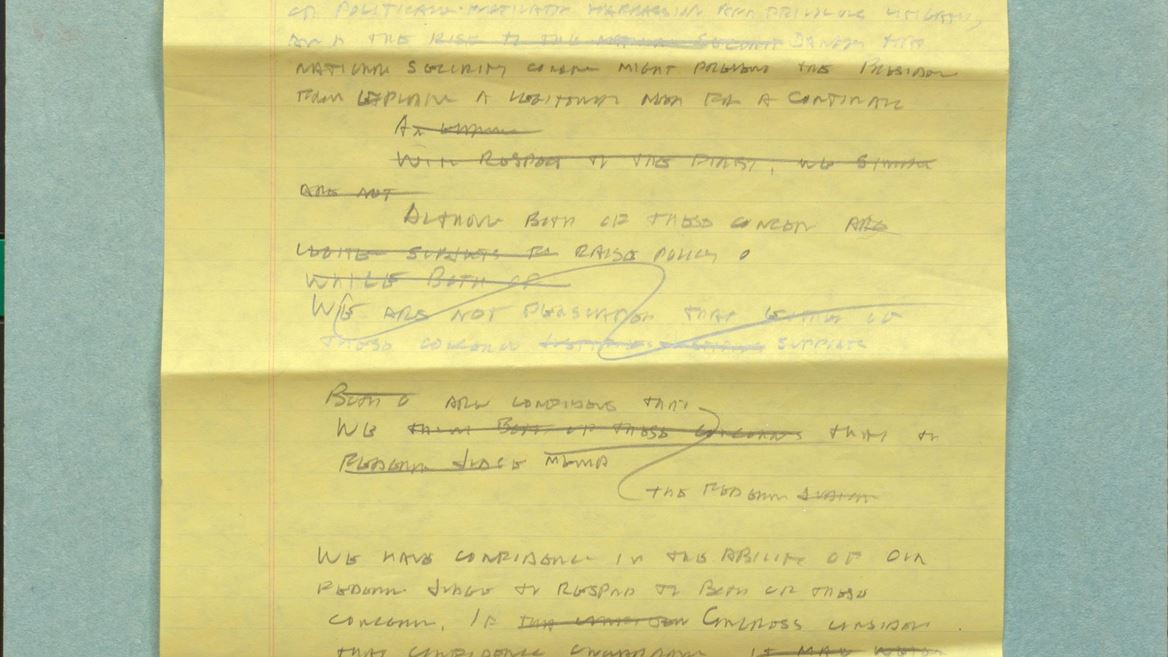 OF POLITICALLY MOTIVATED HARASSING AND FRIVOLOUS LITIGATION,
AND THE RISE TO THE NATIONAL SECURITY DANGER THAT
NATIONAL SECURITY CONCERN MIGHT PREVENT THE PRESIDENT
FROM EXPLAINING A LEGITIMATE NEED FOR A CONTINUANCE
WITH RESPECT TO THE FIRST, WE SIMPLY
ARE NOT
ALTHOUGH BOTH OF THESE CONCERNS ARE
SUBJECTS TO RAISE POLICY
WHILE BOTH OF
WE ARE NOT PERSUADED THAT EITHER OF
THESE CONCERNS SUPPORTS
BOTH ARE CONFIDENT THAT
WE BOTH OF THESE CONCERNS THAT
FEDERAL JUDGE
THE FEDERAL
WE HAVE CONFIDENCE IN THE ABILITY OF OUR
FEDERAL JUDGES TO RESPOND TO BOTH OF THESE
CONCERNS. IF CONGRESS CONSIDERS
THAT CONFIDENCE IT MAY